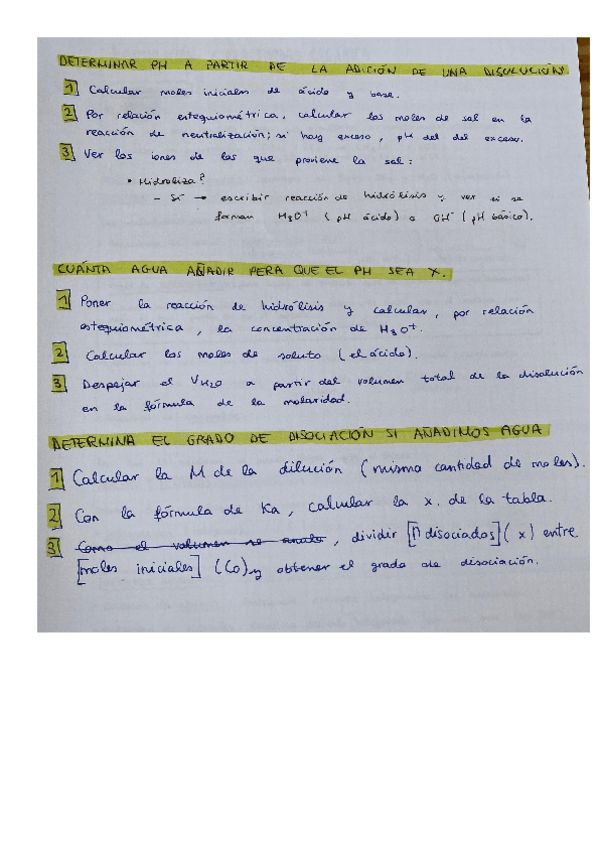 DETERMINAR PH A PARTIR DE LA ADICIÓN DE UNA DISOLUCIÓN
1 Calcular moles iniciales de ácido y base.
2 Por relación estequiométrica, calcular los moles de sal en la
reacción de neutralización; si hay exceso, pH del del exceso.
3 Ver los iones de los que proviene la sal:
• Hidroliza?
- Sí → escribir reacción de hidrólisis y ver si se
forman H3O+ (pH ácido) o OH- (pH básico).
CUÁNTA AGUA AÑADIR PERA QUE EL PH SEA X.
1 Poner la reacción de hidrólisis y calcular, por relación
estequiométrica, la concentración de H3O+.
2 Calcular los moles de soluto (el ácido).
3 Despejar el VH2O a partir del volumen total de la disolución
en la fórmula de la molaridad.
DETERMINA EL GRADO DE DISOCIACIÓN SI AÑADIMOS AGUA
1 Calcular la M de la dilución (misma cantidad de moles).
2 Con la fórmula de Ka, calcular la x. de la tabla.
3 Como el volumen no anula, dividir [n disociados] (x) entre
[moles iniciales] (Co) y obtener el grado de disociación.